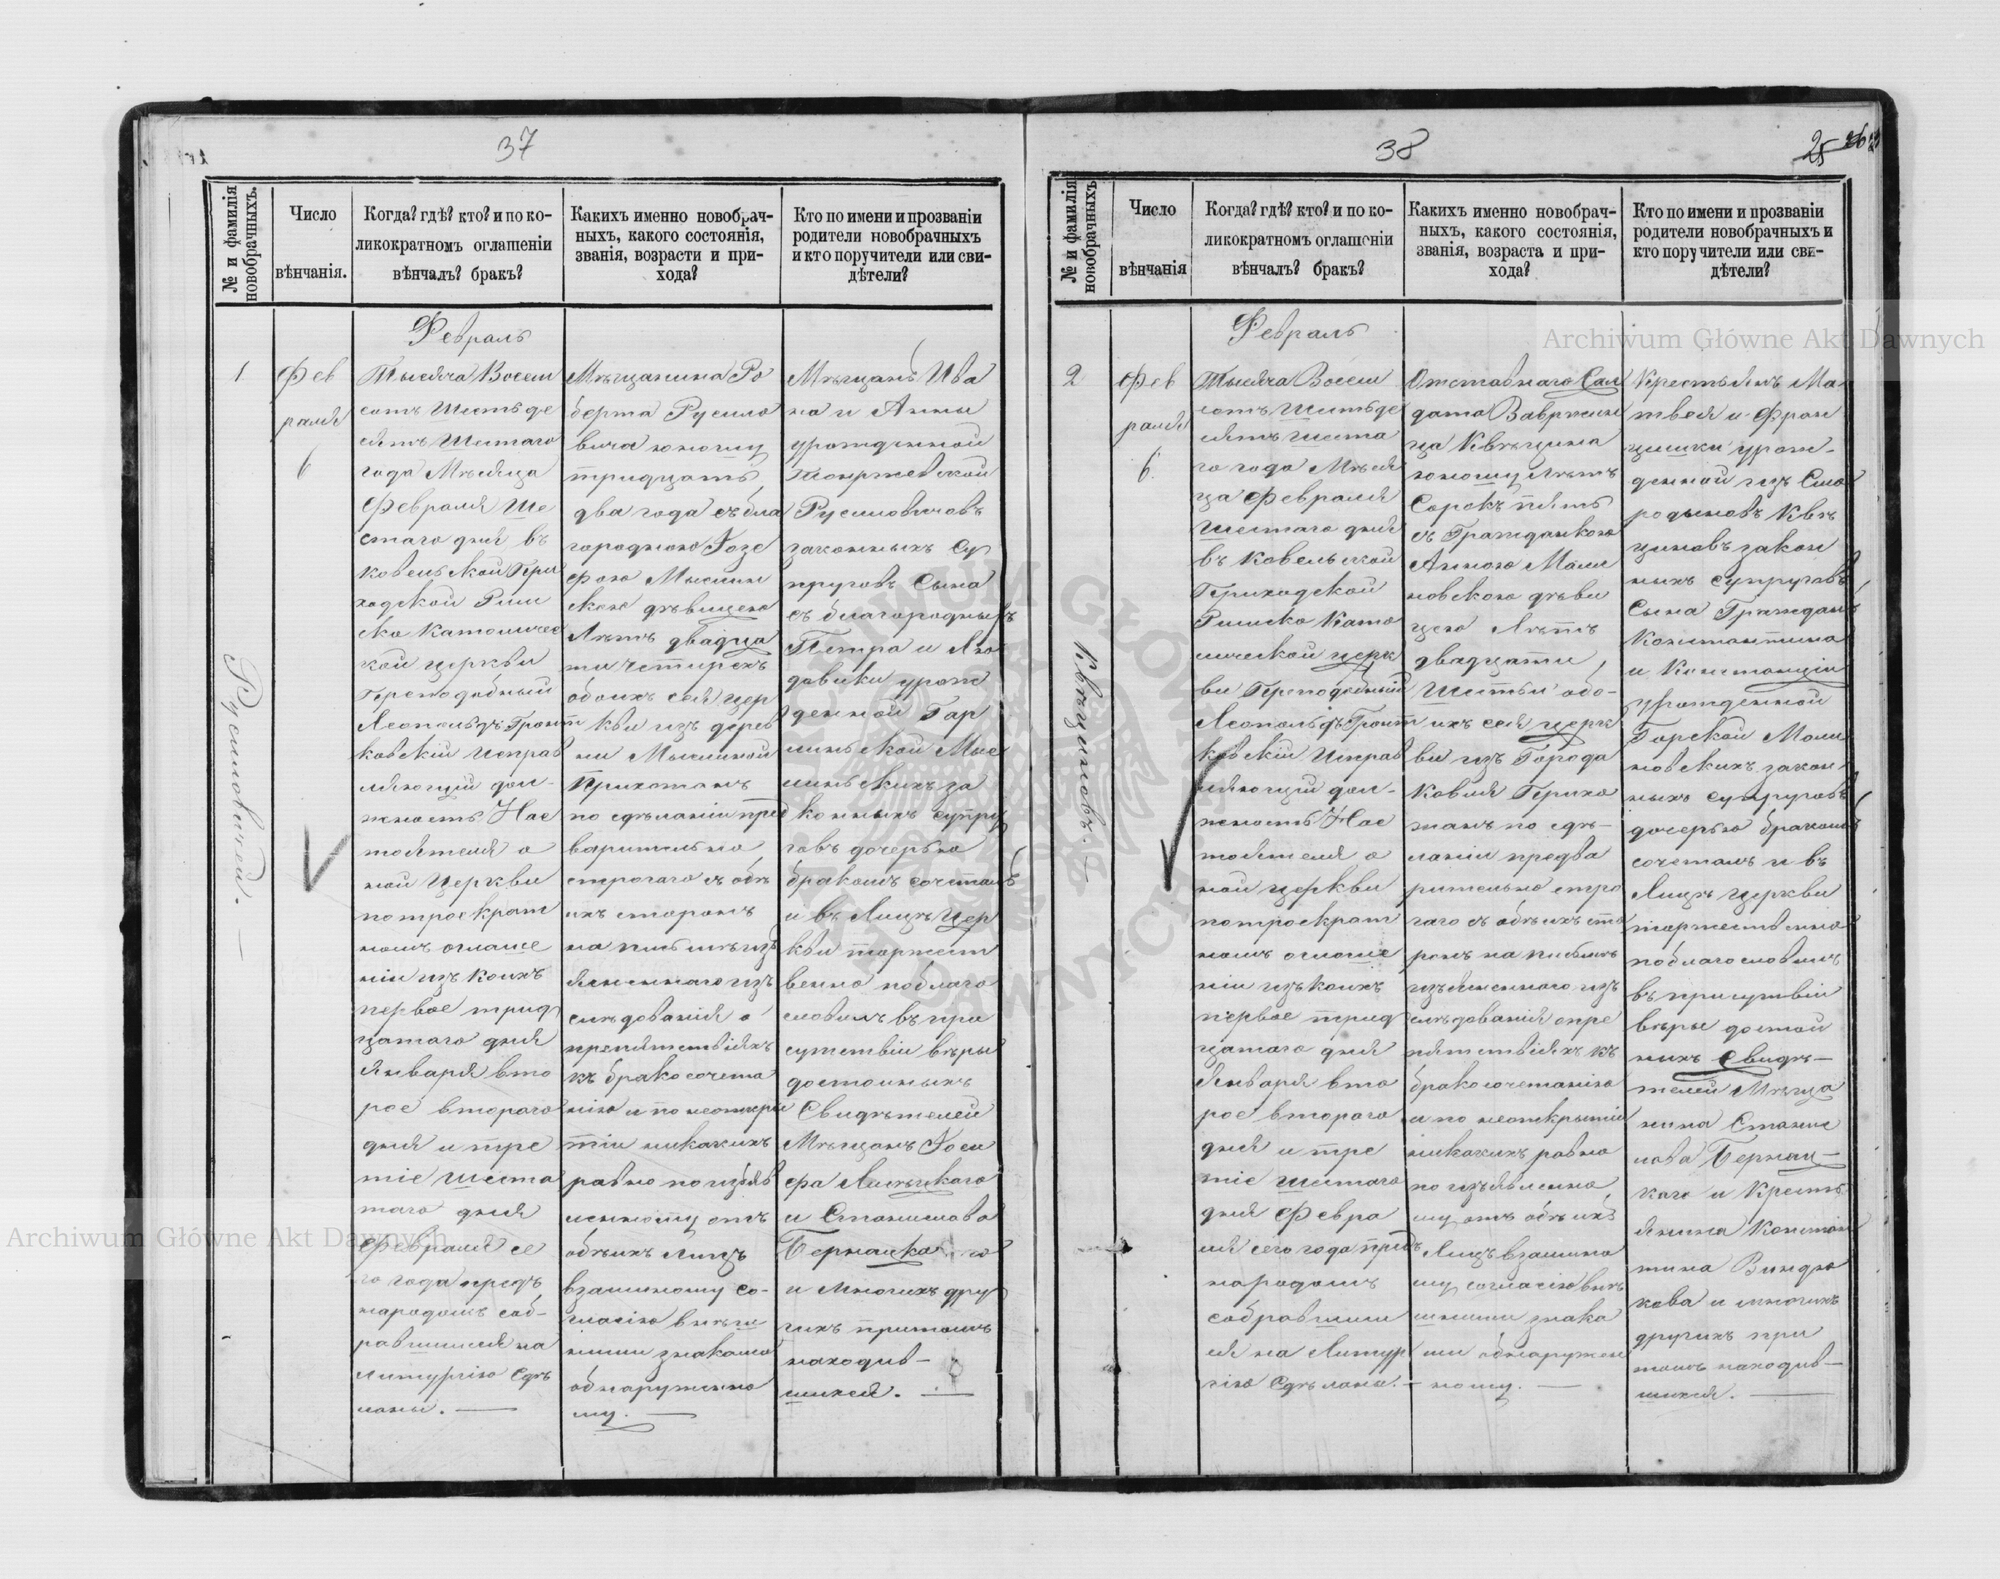 37
№ и фамилія
новобрачныхъ.
Число
вѣнчанія.
Когда? гдѣ? кто? и по ко-
ликократномъ оглашеніи
вѣнчалъ? бракъ?
Каихъ именно новобрач-
ныхъ, какого состоянія,
званія, возрасти и при-
хода?
Кто по имени и прозванію
родители новобрачныхъ
и кто поручители или сви-
дѣтели?
1
Русиловичей. —
Фев
раля
6
Февраль
Тысяча Восем
сотъ Шестьде
сятъ Шестаго
года Мѣсяца
Февраля Ше
стаго дня въ
Ковельской При
ходской Рим
ско Католичес
кой церкви
Преподобный
Леопольдъ
ковскій Исправ
ляющій дол-
жность Нас
тоятеля о
ной Церкви
по троекрат
номъ оглаше
ніи изъ коихъ
первое трид
цатаго дня
Января вто
рое втораго
дня и тре
тіе шеста
таго дня
Февраля се
го года предъ
народомъ соб-
равшимся на
литургію сдѣ
ланы. —
Мѣщанина Ро
берта Русило
вича юношу
тридцать
два года съ бла
городною Іозе
фою Мыслин
скою дѣвицею
Лѣтъ двадца
ти четырехъ
обоихъ сея цер
кви изъ дерев
ни Мыслиной
Прихожанъ
по сдѣланіи пред
варительно
строгаго съ обѣ
ихъ сторонъ
на письмѣ изъ
ясненнаго изъ
слѣдованія о
препятствіяхъ
къ бракосочета
нію и по неоткры
тіи никакихъ
равно по изъяв
ленному отъ
обѣихъ лицъ
взаимному со-
гласію внѣш
ними знаками
обнаруженно
му. —
Мѣщанъ Ива
на и Анны
урожденной
Русиловичовъ
законныхъ Су
пруговъ Сына
съ благородныхъ
Петра и Лю
довики урож
денной Гар
линской Мыс
линскихъ за
конныхъ супру
говъ дочерью
бракомъ сочеталъ
и въ Лицѣ Цер
кви торжест
венно поблаго
словилъ въ при
сутствіи вѣры
достойныхъ
Свидѣтелей
Мѣщанъ Іоси
фа
и Станислава
Бернацкаго
и многихъ дру
гихъ притомъ
находив-
шихся. —
38
25
№ и фамилія
новобрачныхъ
Число
вѣнчанія
Когда? гдѣ? кто? и по ко-
ликократномъ оглашеніи
вѣнчалъ? бракъ?
Какихъ именно новобрач-
ныхъ, какого состоянія,
званія, возраста и при-
хода?
Кто по имени и прозванію
родители новобрачныхъ и
кто поручители или сви-
дѣтели?
2
Квѣциновъ. —
Фев
раля
6.
Февраль
Тысяча Восем
сотъ Шестьде
сятъ шеста
го года Мѣся
ца Февраля
Шестаго дня
въ Ковельской
Приходской
Римско Като
лической церк
ви Преподобный
Леопольдъ
ковскій Исправ
ляющій дол-
жность Нас
тоятеля о
ной церкви
по троекрат
номъ оглаше
ніи изъ коихъ
первое трид
цатаго дня
Января вто
рое втораго
дня и тре
тіе шестаго
дня Февра
ля сего года предъ
народомъ
собравшим
ся на Литур
гію сдѣланы. —
Отставнаго Сал
дата Вавржин
ца Квѣцина
юношу лѣтъ
Сорокъ пять
съ Гражданкою
Анною Мали
новскою дѣви
цею Лѣтъ
двадцати
Шести обо-
ихъ сея церк
ви изъ Города
Ковля Прихо
жанъ по сдѣ-
ланіи предва
рительно стро
гаго съ обѣихъ сто
ронъ на письмѣ
изъясненнаго изъ
слѣдованія о пре
пятствіяхъ къ
бракосочетанію
и по неоткрытіи
никакихъ равно
по изъявленно
му отъ обѣихъ
Лицъ взаимно
му согласію внѣ
шними знака
ми обнаружен
ному. —
Крестьянъ Мат
твея и Фран
цишки урож-
денной изъ Смо
родыновъ Квѣ
циновъ закон
ныхъ супруговъ
Сына Гражданъ
Константина
и Констанціи
урожденной
Горской Мали
новскихъ закон
ныхъ супруговъ
дочерью бракомъ
сочеталъ и въ
Лицѣ Церкви
торжественно
поблагословилъ
въ присутствіи
вѣры достой
ныхъ Свидѣ-
телей Мѣща
нина Станис
лава Бернац-
каго и Кресть
янина Констан
тина Виндю
кова и многихъ
другихъ при
томъ находив-
шихся. —
Archiwum Główne Akt Dawnych
Archiwum Główne Akt Dawnych
ARCHIWUM GŁÓWNE AKT DAWNYCH